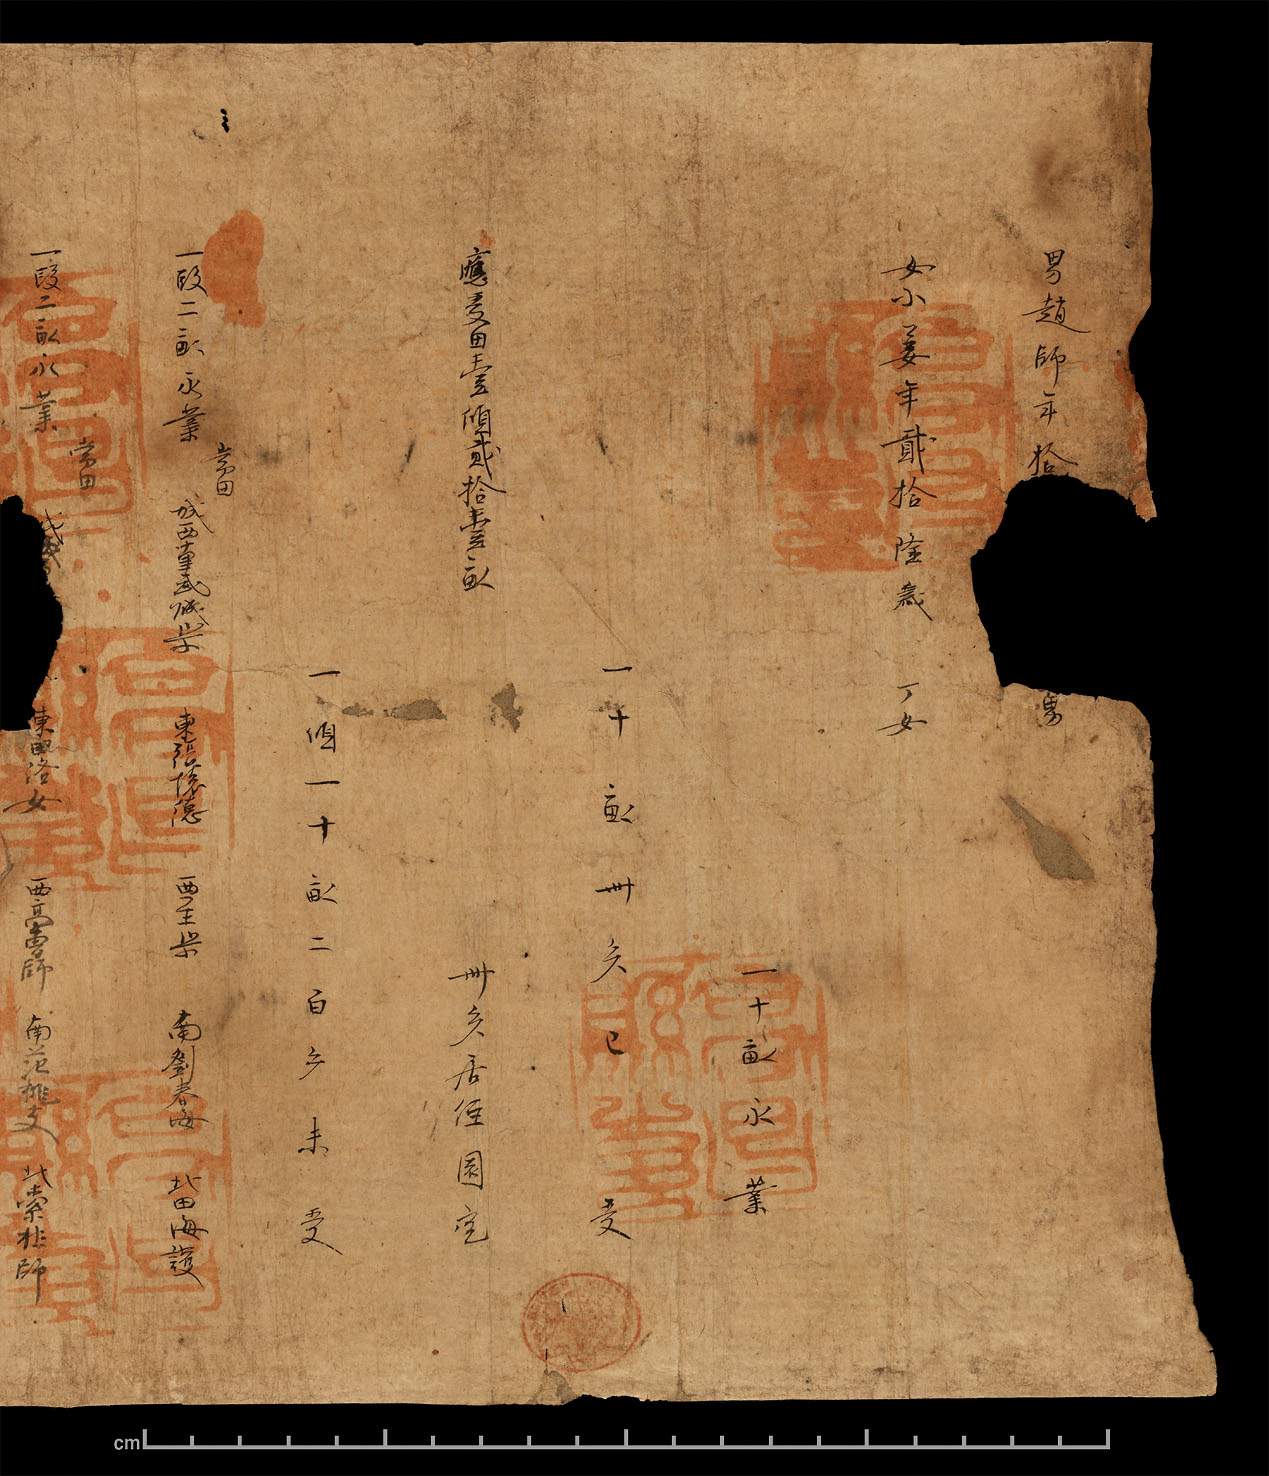 男趙師年拾 男
女小姜年貳拾陸歲 丁女
一十畝永業
一十畝卌步已受
卌步居住園宅
應受田壹傾貳拾壹畝
一傾一十畝二百步未受
一段二畝永業 常田 城西 東張懷德 西至渠 南劉春海 北田海護
一段二畝永業 常田 東 洛女 西高 師 南范 北索 師
cm